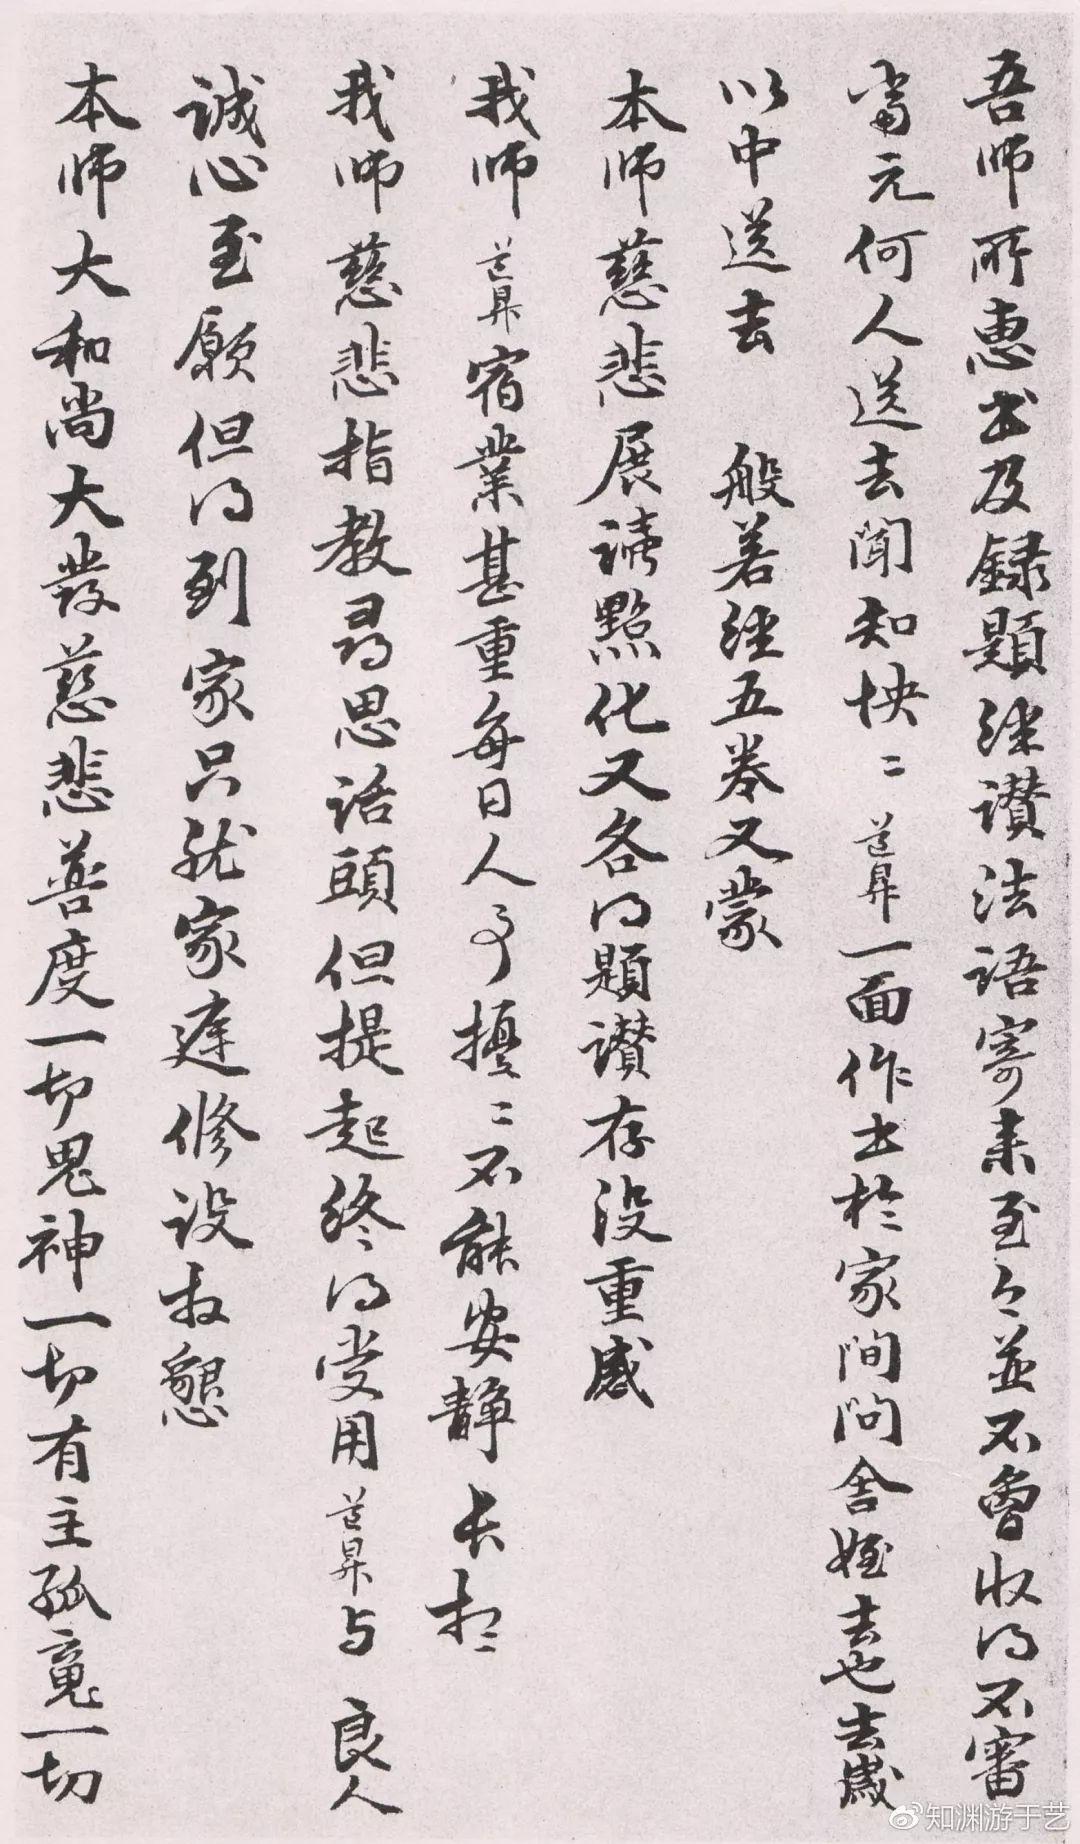 吾师所惠书及録題經讃法語寄来至今並不曾收得不審
當元何人送去聞知怏〻道昇一面作书於家間问舍姪去也去歲
以中送去 般若経五卷又蒙
本师慈悲展讀點化又各得題讃存没重感
我师道昇宿業甚重每日人事擾〻不能安静长想
我师慈悲指教尋思话頭但提起终得受用道昇与良人
誠心至願但得到家只就家庭修设拜懇
本师大和尚大發慈悲普度一切鬼神一切有主孤䰟一切
知渊游于艺